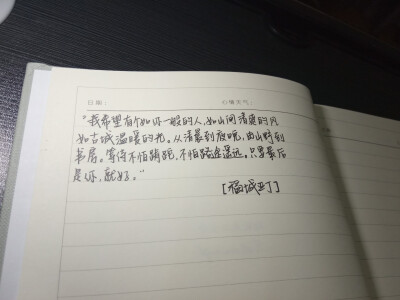 日期: 心情天气:
"我希望有个如你一般的人,如山间清爽的风
如古城温暖的光。从清晨到夜晚,由山野到
书房。等待不怕蹉跎,不怕路途遥远。只要最后
是你,就好。"
[福城